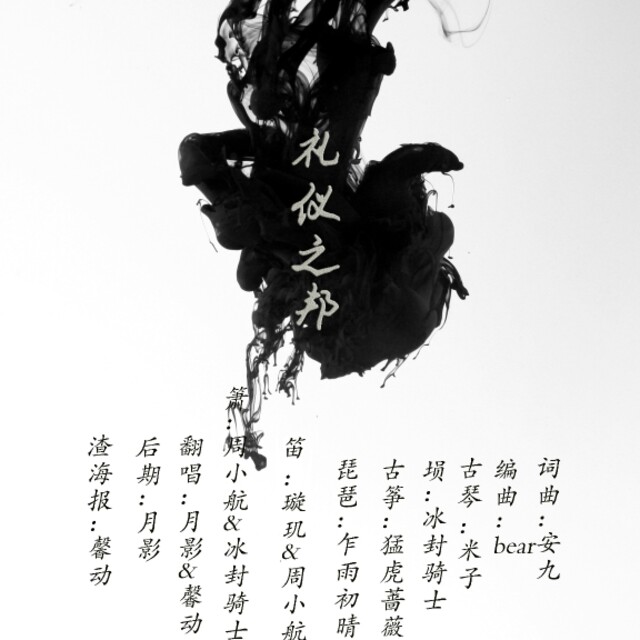 礼仪之邦
词曲：安九
编曲：bear
古琴：米子
埙：冰封骑士
古筝：猛虎蔷薇
琵琶：乍雨初晴
笛：璇玑&周小航
箫：周小航&冰封骑士
翻唱：月影&馨动
后期：月影
渣海报：馨动